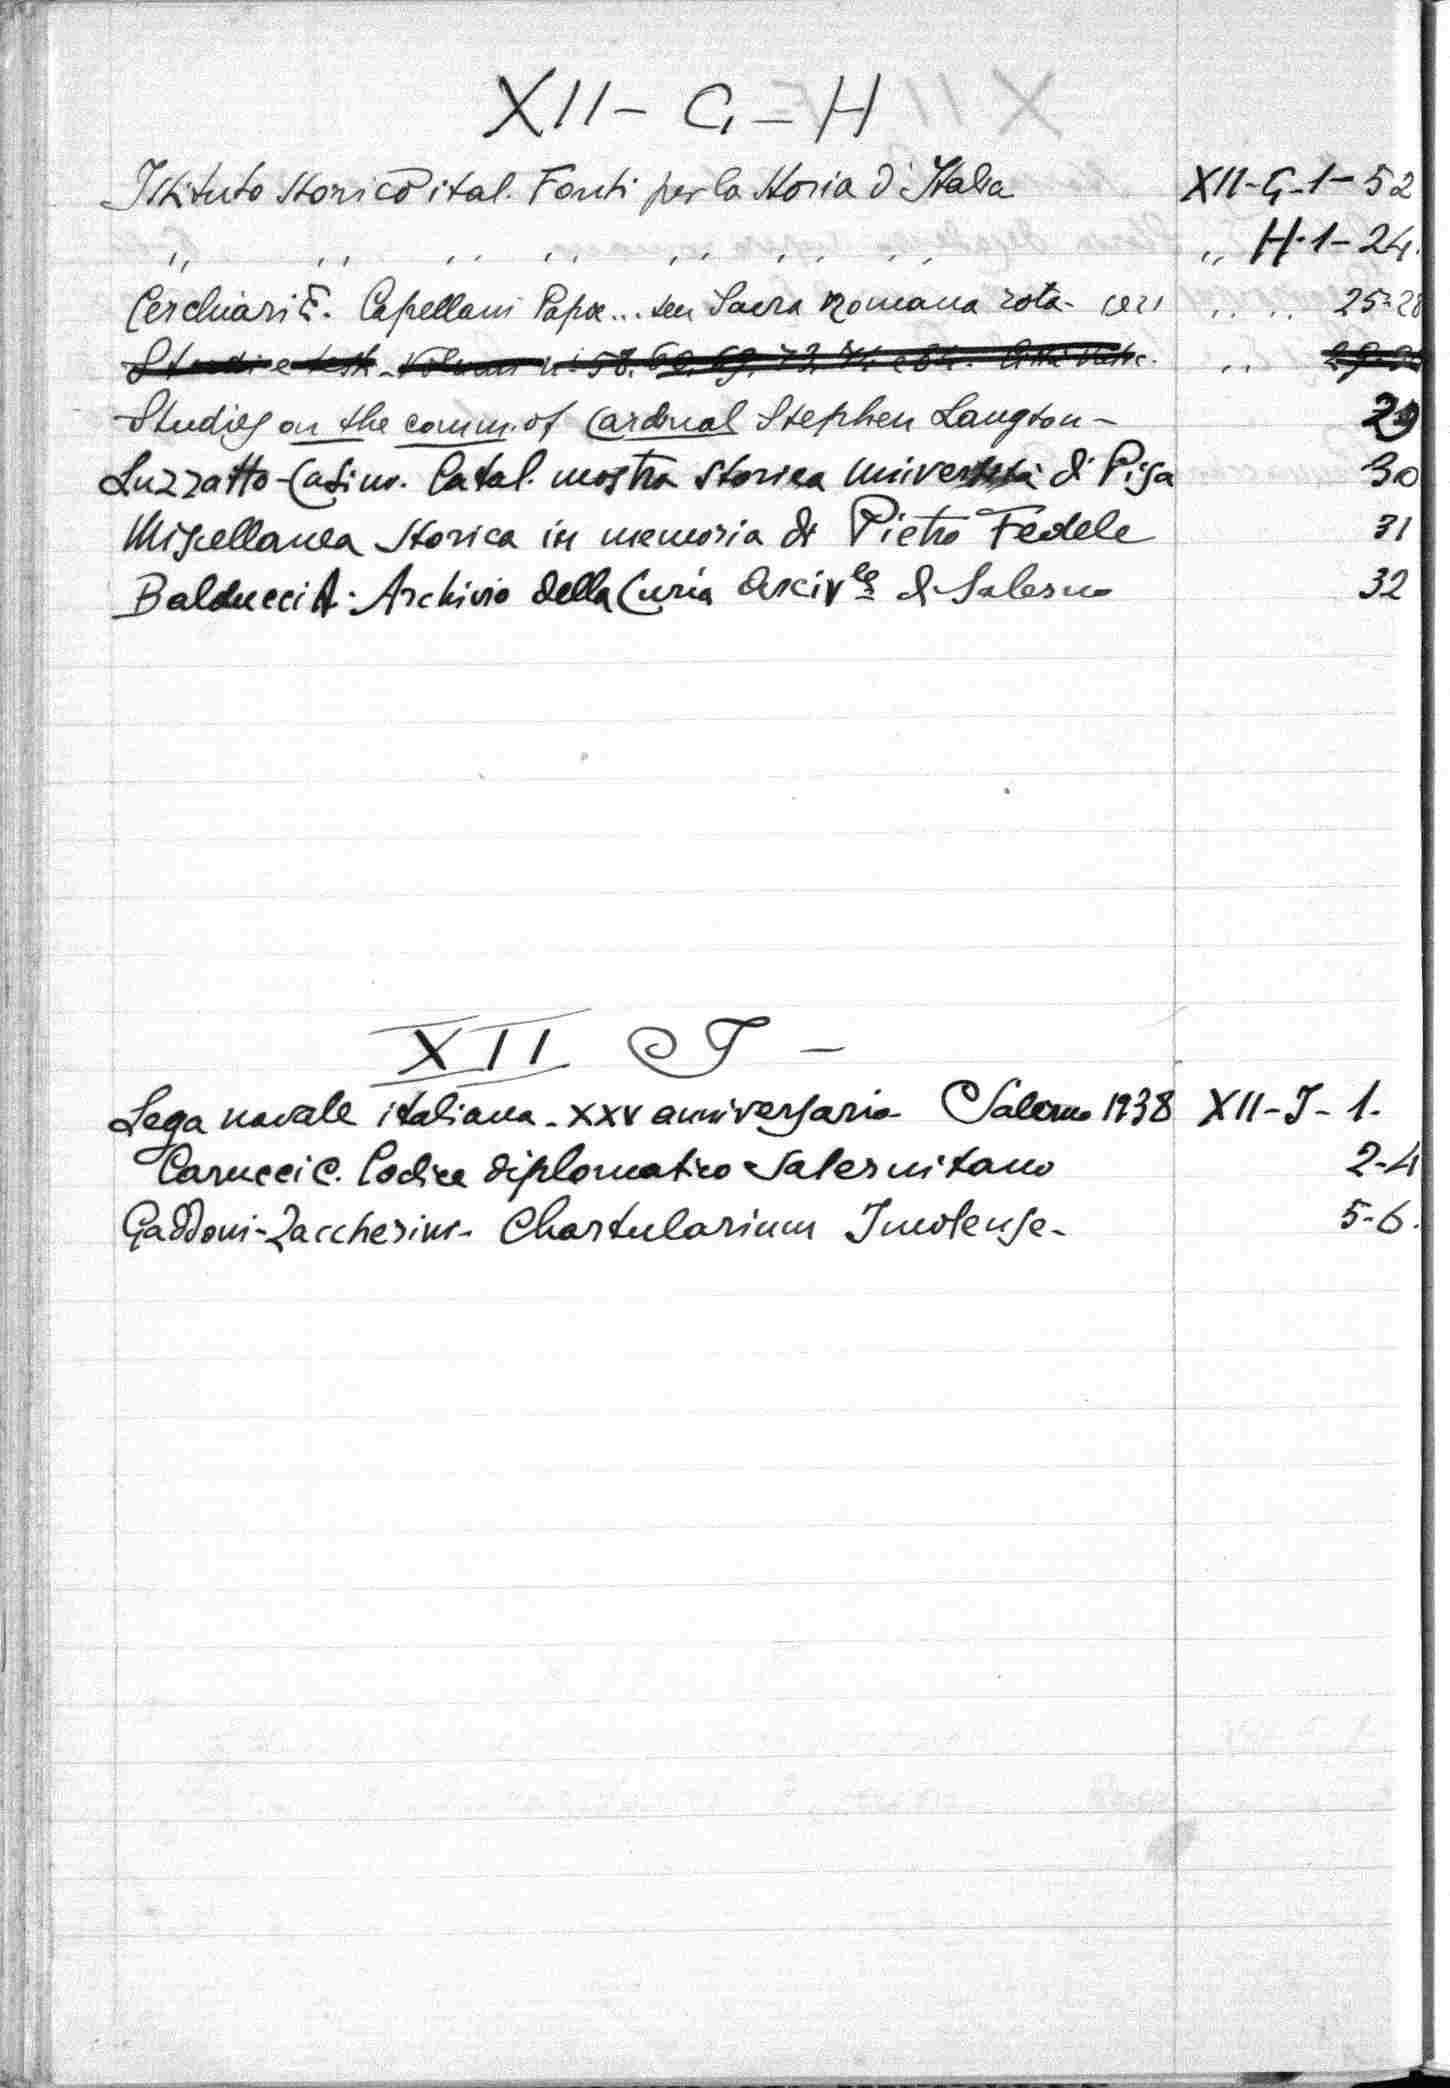 XII - G = H
Istituto Storico ital. Fonti per la Storia d'Italia XII-G-1-52
,, ,, ,, ,, ,, ,, ,, ,, H-1-24.
Cerchiari E. Capellani Papae... seu Sacra Romana rota- ,, ,, 25-28
Studi e testi - Volumi n. 58. 60. 69. 73. 74 e 84. Città Vatic. ,,
Studies on the comm. of Cardinal Stephen Langton - 29
Luzzatto-Casini. Catal. mostra storica Università di Pisa 30
Miscellanea Storica in memoria di Pietro Fedele 31
Balducci A. Archivio della Curia Arcivle di Salerno 32
XII I -
Lega navale italiana - XXV anniversario Salerno 1938 XII-I-1.
Carucci C. Codice diplomatico Salernitano 2-4
Gaddoni-Zaccherini- Chartularium Imolense- 5-6.